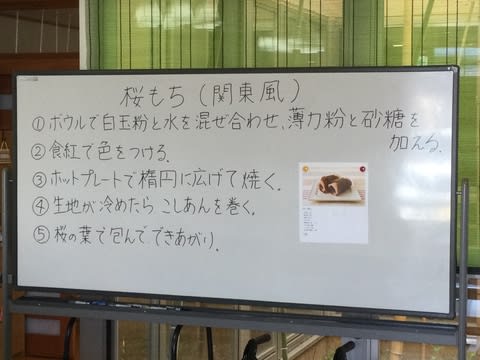 桜もち(関東風)
①ボウルで白玉粉と水を混ぜ合わせ、薄力粉と砂糖を
加える。
②食紅で色をつける。
③ホットプレートで楕円に広げて焼く。
④生地が冷めたら こしあんを巻く。
⑤桜の葉で包んで できあがり。